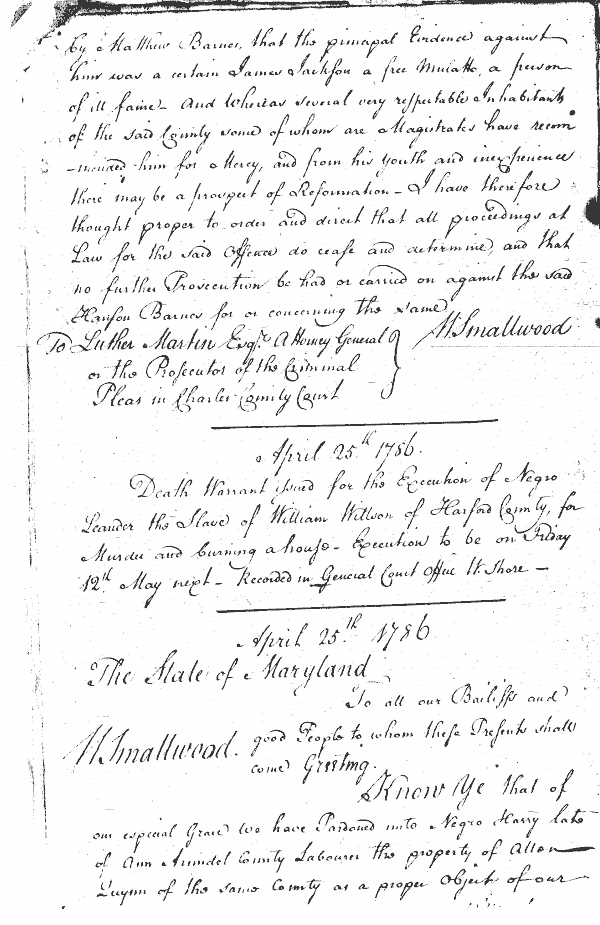 by Matthew Barnes, that the principal Evidence against
him was a certain James Jackson a free Mulatto, a person
of ill fame – And Whereas several very respectable Inhabitants
of the said County some of whom are Magistrates have recom
-mended him for Mercy, and from his youth and inexperience
there may be a prospect of Reformation – I have therefore
thought proper to order and direct that all proceedings at
Law for the said Offence do cease and determine, and that
no further Prosecution be had or carried on against the said
Hanson Barnes for or concerning the same
W Smallwood
To Luther Martin Esqr. Attorney General
or the Prosecutor of the Criminal
Pleas in Charles County Court
April 25.th 1786.
Death Warrant issued for the Execution of Negro
Leander the Slave of William Willson of Harford County, for
Murder and burning a house – Execution to be on Friday
12.th May next – Recorded in General Court Office W. Shore –
April 25.th 1786
The State of Maryland
To all our Bailiffs and
W Smallwood. good People to whom these Presents shall
come Greeting.
Know Ye that of
our especial Grace we have Pardoned unto Negro Harry late
of Ann Arundel County Labourer the property of Allen
Quynn of the same County as a proper Object of our